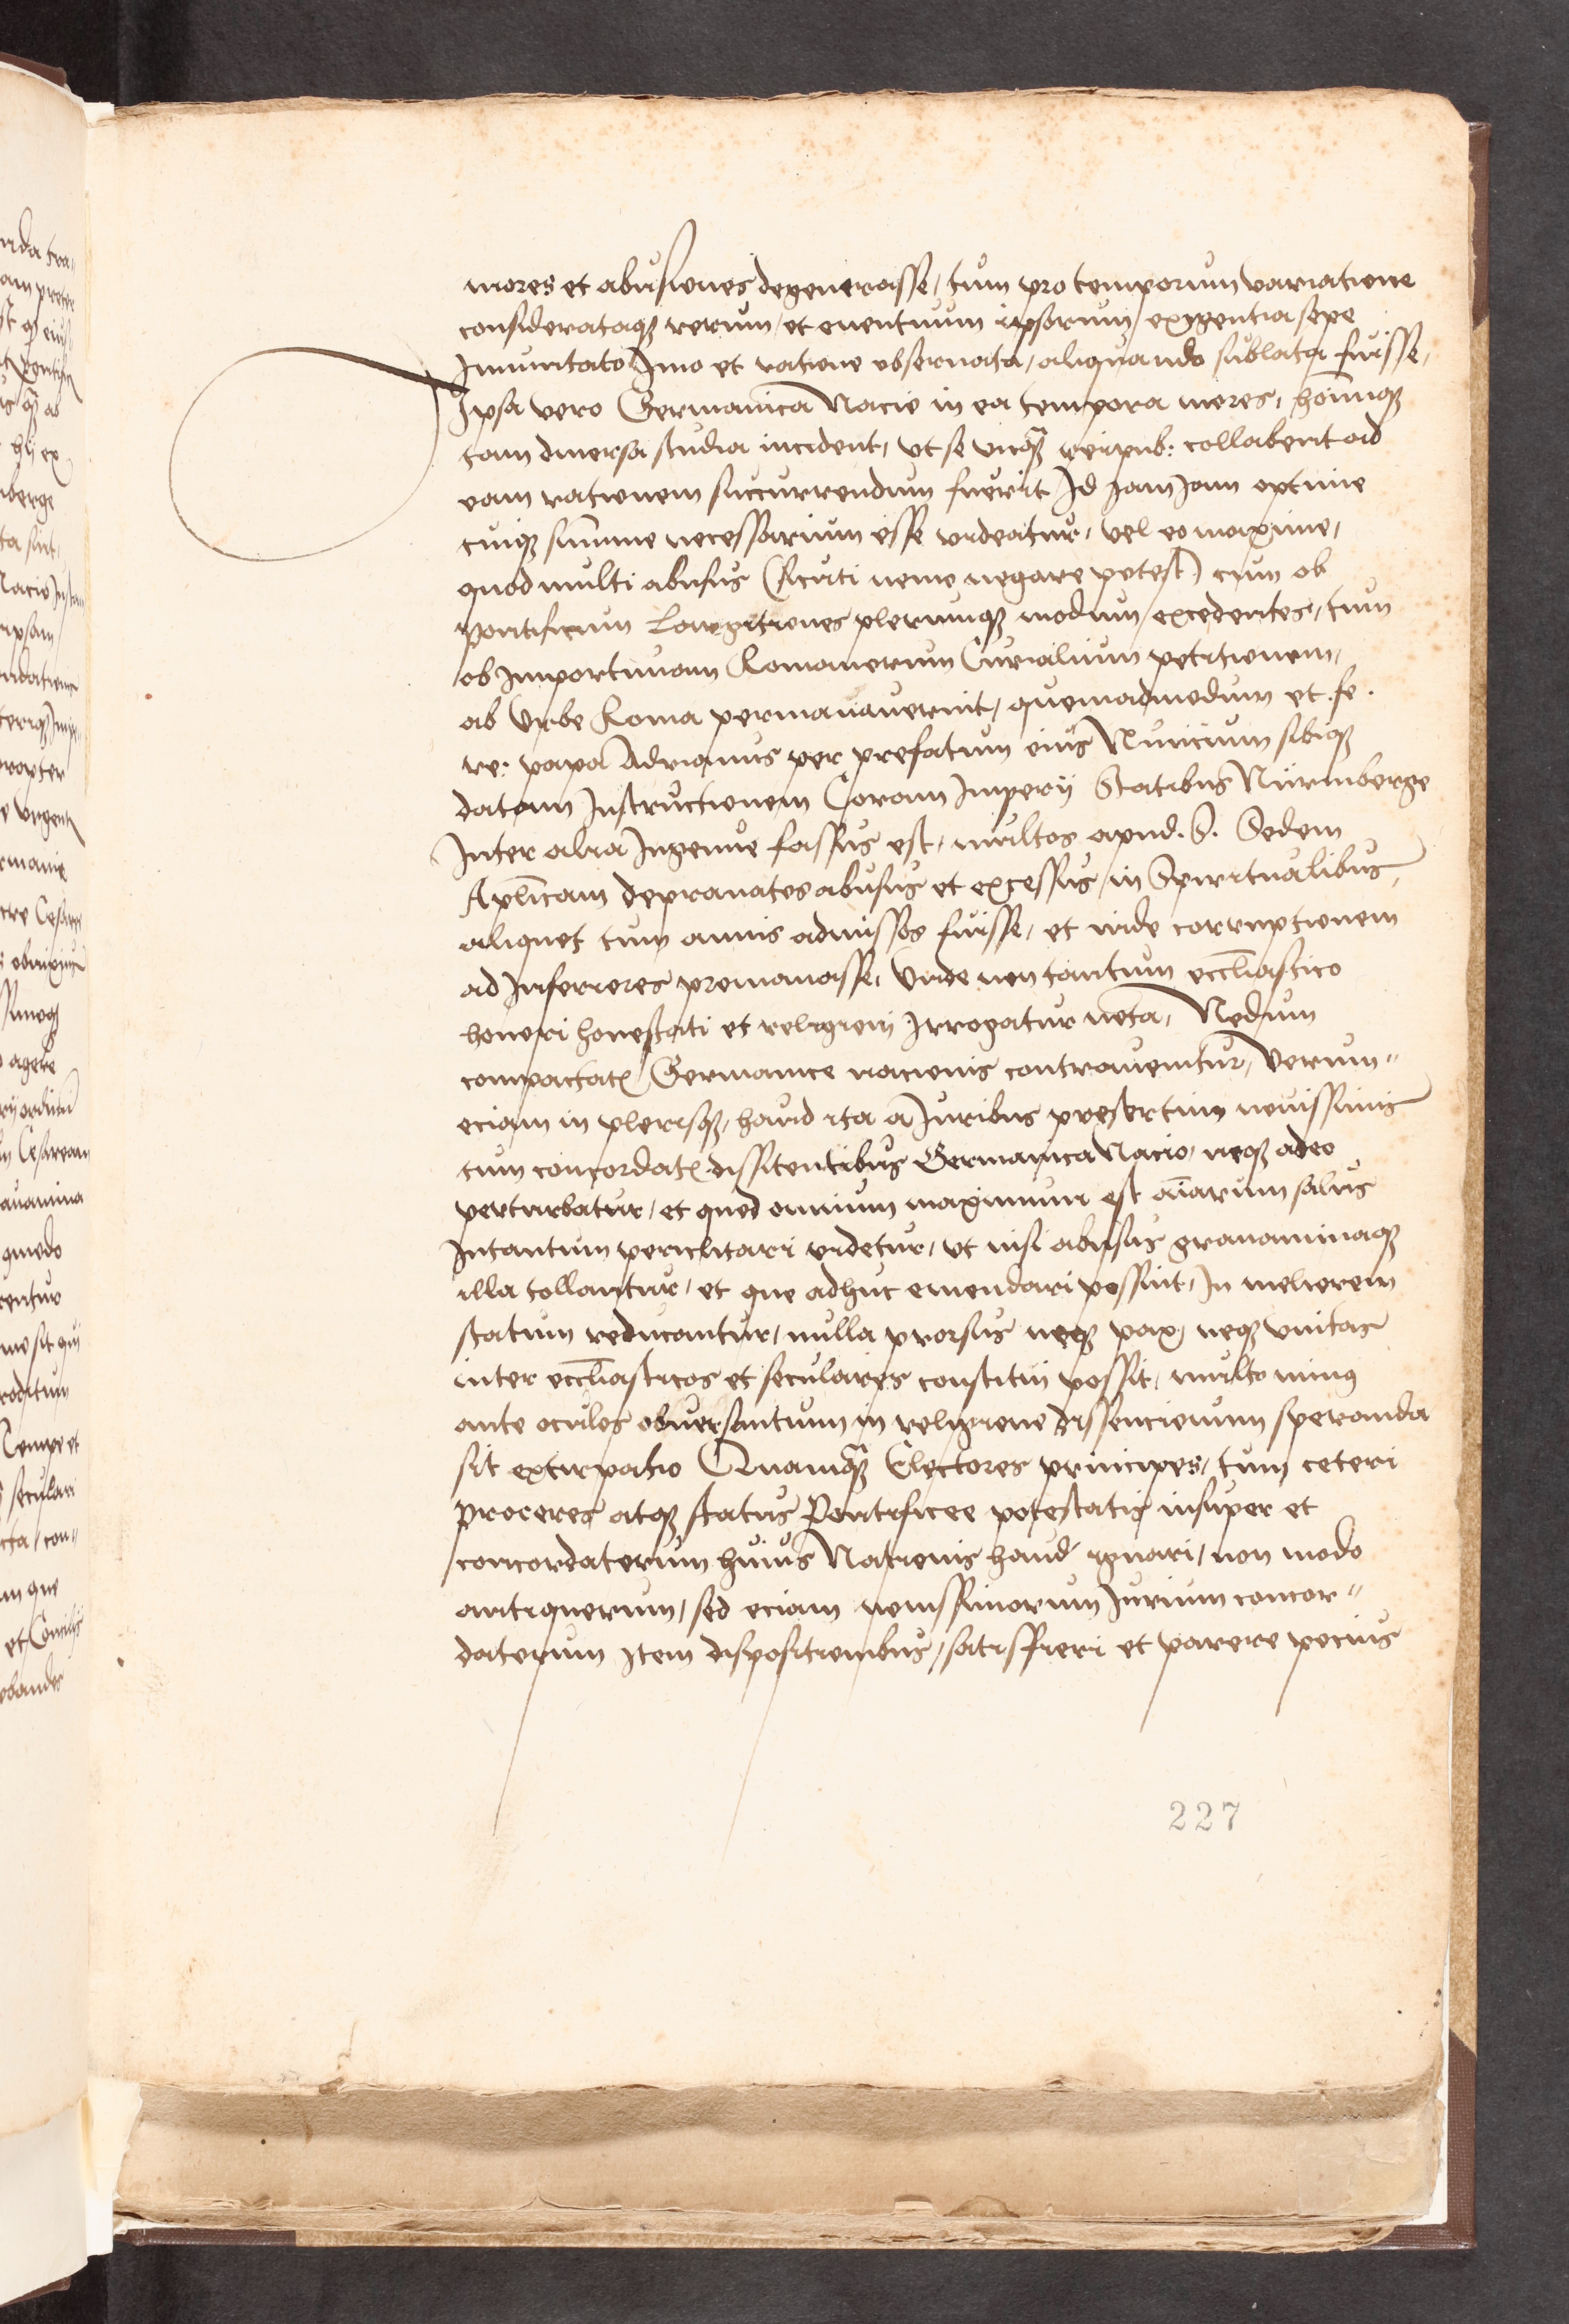 mores et abusiones degenerasse, tum pro temporum variatione
considerataq₃ rerum, et euentuum ipsorum, exygentia sepe
Imuntato Imo et ratione obseruata, aliquando sublata fuisse,
Ipsa vero Germanica Nacio in ea tempora mores, hoīmq₃
tam diuersa studia incident, vt se vnq̄₃ reipub: collabent ad
eam rationem succurrendum fuerit Id iam iam optime
cuiq₃ sum̄me necessarium esse videatur, vel eo maxime,
quod multi abusus (sicuti nemo negare potest) cum ob
pontificum Largitiones plerumq₃ modum excedentes, tum
ob Importunam Romanorum Curialium petitionem,
ab Vrbe Roma permanauerint, quemadmodum et .fe.
re: papa Adrianus per prefatum eius Nuncium sibiq₃
datam Instructionem Coram Imperij Statibus Nurmberge
Inter alia Ingenue fassus est, multos apud .S. Sedem
Aplicam deprauatos abusus et excessus in Spiritualibus,
aliquot tum annis admissos fuisse, et inde corruptionem
ad Inferiores promanasse, Vnde non tantum ecclīastico
honori honestati et religioni Irrogatur nota, Nedum
compactat₎ Germanice nacionis contrauenitur, Verum"
eciam in plerisq₃, haud ita a Juribus presertim nouissimis
tum concordat₎ dissitentibus Germanica Nacio, neq₃ adeo
perturbatur, et quod omnium maximum est aīarum salus
Intantum periclitari videtur, vt nisi abusus grauaminaq₃
illa tollantur, et que adhuc emendari possint, In meliorem
statum reducantur, nulla prorsus neq₃ pax, neq₃ vnitas
inter ecclīasticos et seculares constitui possit, multo minus
ante oculos obuersantium in religione dissencionum speranda
sit extirpatio Quamq̄₃ Electores principes, tum ceteri
proceres atq₃ status Pontificee potestatis insuper et
concordatorum huius Nationis haud ignari, non modo
antiquorum, sed eciam nouissimorum Jurium concor"
datorum Item dispositionibus, satisfieri et parere pocius
227